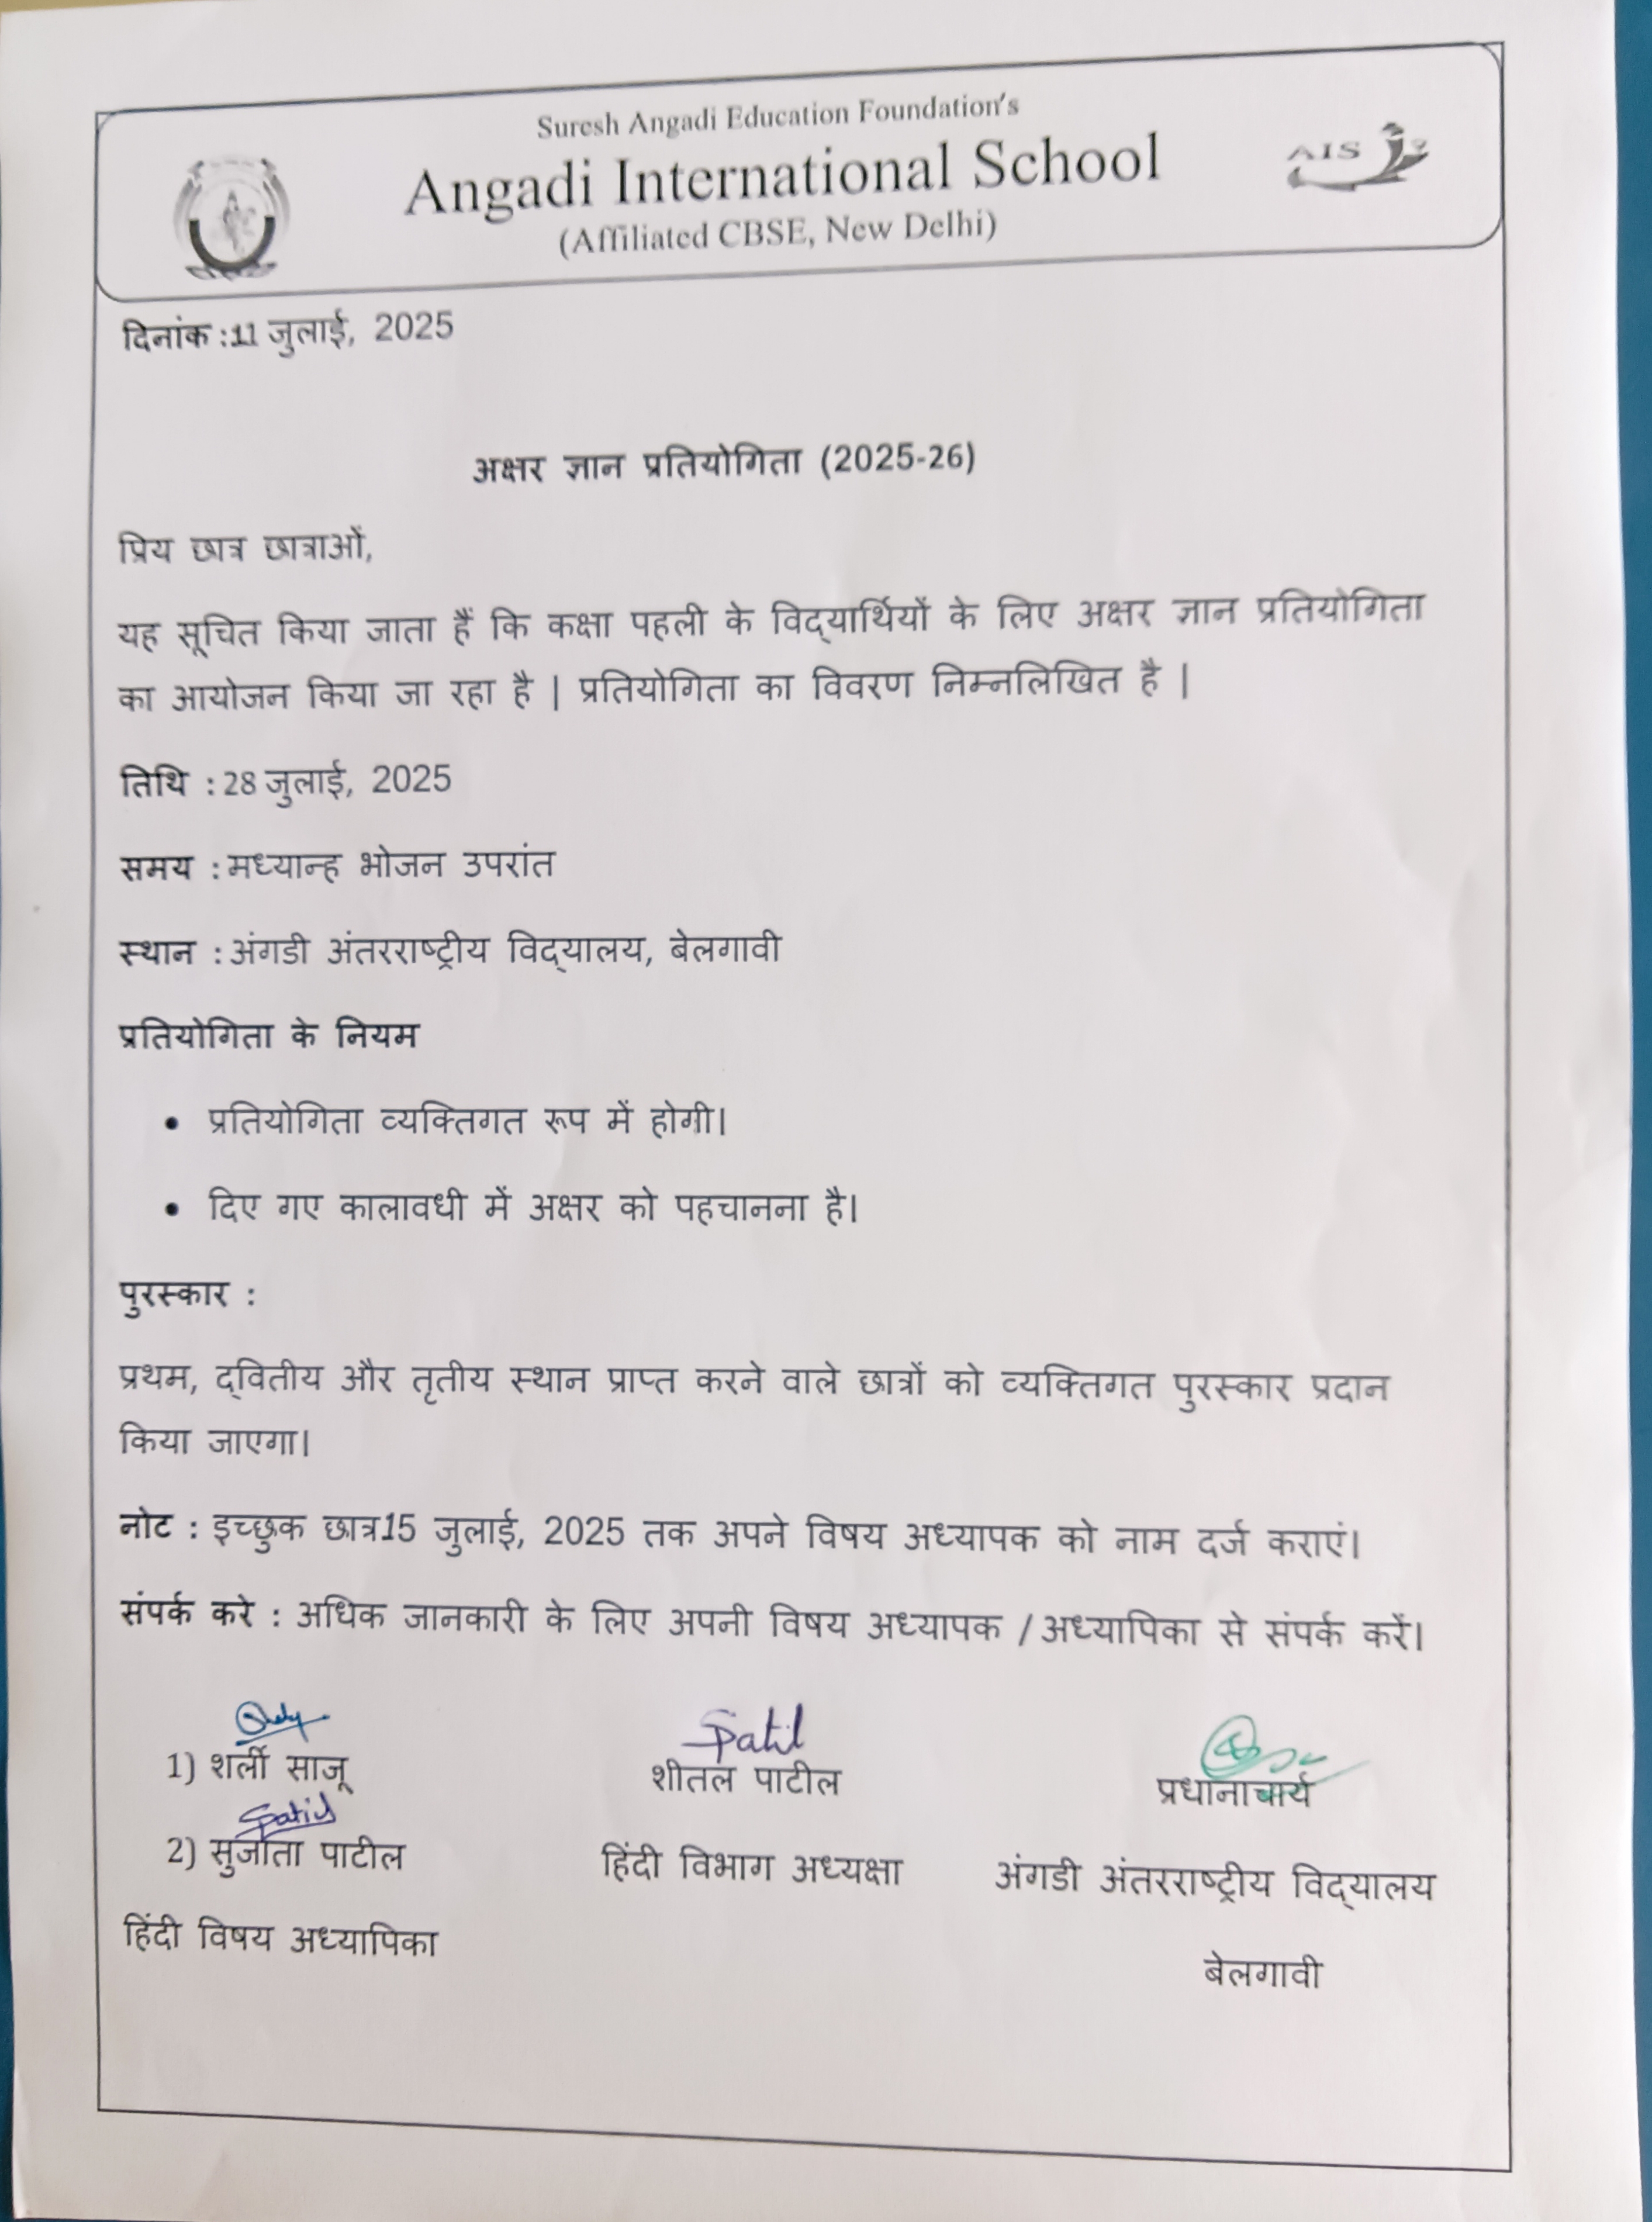 Suresh Angadi Education Foundation's
Angadi International School
(Affiliated CBSE, New Delhi)
AIS
दिनांक :11 जुलाई, 2025
अक्षर ज्ञान प्रतियोगिता (2025-26)
प्रिय छात्र छात्राओं,
यह सूचित किया जाता हैं कि कक्षा पहली के विद्यार्थियों के लिए अक्षर ज्ञान प्रतियोगिता
का आयोजन किया जा रहा है | प्रतियोगिता का विवरण निम्नलिखित है |
तिथि : 28 जुलाई, 2025
समय : मध्यान्ह भोजन उपरांत
स्थान : अंगडी अंतरराष्ट्रीय विद्यालय, बेलगावी
प्रतियोगिता के नियम
• प्रतियोगिता व्यक्तिगत रूप में होगी।
• दिए गए कालावधी में अक्षर को पहचानना है।
पुरस्कार :
प्रथम, द्वितीय और तृतीय स्थान प्राप्त करने वाले छात्रों को व्यक्तिगत पुरस्कार प्रदान
किया जाएगा।
नोट : इच्छुक छात्र15 जुलाई, 2025 तक अपने विषय अध्यापक को नाम दर्ज कराएं।
संपर्क करे : अधिक जानकारी के लिए अपनी विषय अध्यापक / अध्यापिका से संपर्क करें।
Spatil
1) शर्ली साजू शीतल पाटील प्रधानाचार्य
Spatil
2) सुजाता पाटील हिंदी विभाग अध्यक्षा अंगडी अंतरराष्ट्रीय विद्यालय
हिंदी विषय अध्यापिका बेलगावी